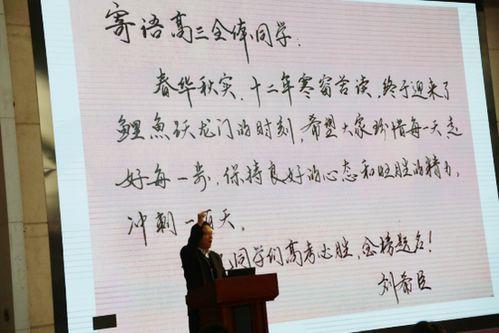 寄语高三全体同学:
春华秋实,十二年寒窗苦读,终于迎来了
鲤魚跃龙门的时刻,希望大家珍惜每一天走
好每一步,保持良好的心态和旺盛的精力,
冲刺一百天,
同学们高考必胜,金榜题名!
刘